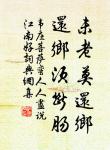 未老莫還鄉
還鄉須斷腸
韋庄菩薩蠻人人盡說
江南好詞